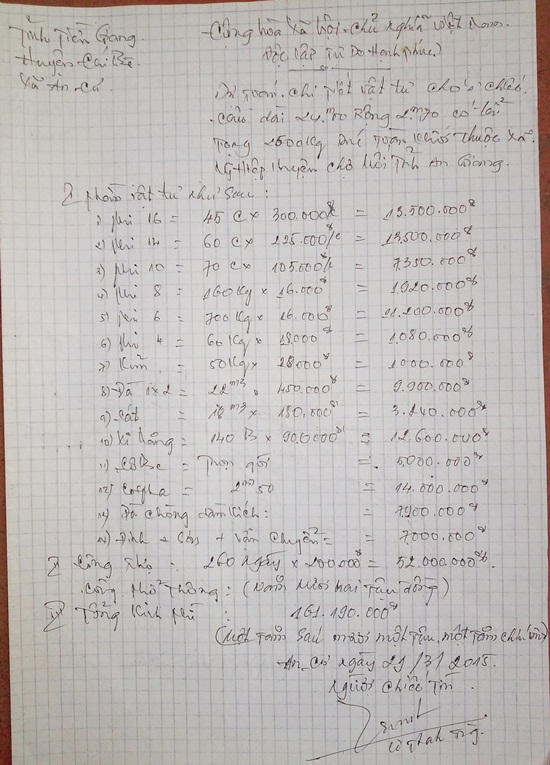 Tỉnh Tiền Giang. Cộng hòa xã hội chủ nghĩa Việt Nam.
Huyện Cái Bè Độc Lập Tự Do Hạnh Phúc.
Xã An Cư
Dự toán chi tiết vật tư cho 01 chiếc
cầu dài 24m00 Rộng 2m70 có tải
trọng 2500kg thuộc xã
huyện chợ Mới Tỉnh An Giang.
I phần vật tư như sau:
1) phi 16 = 45 C x 300.000đ/c = 13.500.000đ
2) phi 14 = 60 C x 225.000đ/c = 13.500.000đ
3) phi 10 = 70 C x 105.000đ/c = 7.350.000đ
4) phi 8 = 160kg x 16.000đ = 1.920.000đ
5) phi 6 = 700kg x 16.000đ = 11.200.000đ
6) phi 4 = 60kg x 18.000đ = 1.080.000đ
7) Kẽm = 50kg x 28.000đ = 1.000.000đ
8) Đá 1x2 = 22m3 x 450.000đ = 9.900.000đ
9) Cát = 18m3 x 180.000đ = 3.240.000đ
10) Xi măng = 140 B x 90.000đ = 12.600.000đ
11) = Trọn gói = 5.000.000đ
12) Coppha = 2m50 = 14.000.000đ
= 7.900.000đ
14) Đinh + Cây + vận chuyển = 7.000.000đ
II Công thợ : 260 ngày x 200.000đ = 52.000.000đ.
Công phổ thông: (Năm mươi hai triệu đồng)
III Tổng kinh phí : 161.190.000đ
(Một trăm sáu mươi một triệu, một trăm chín mươi)
An Cư ngày 29/3/2015.
Người chiết tính